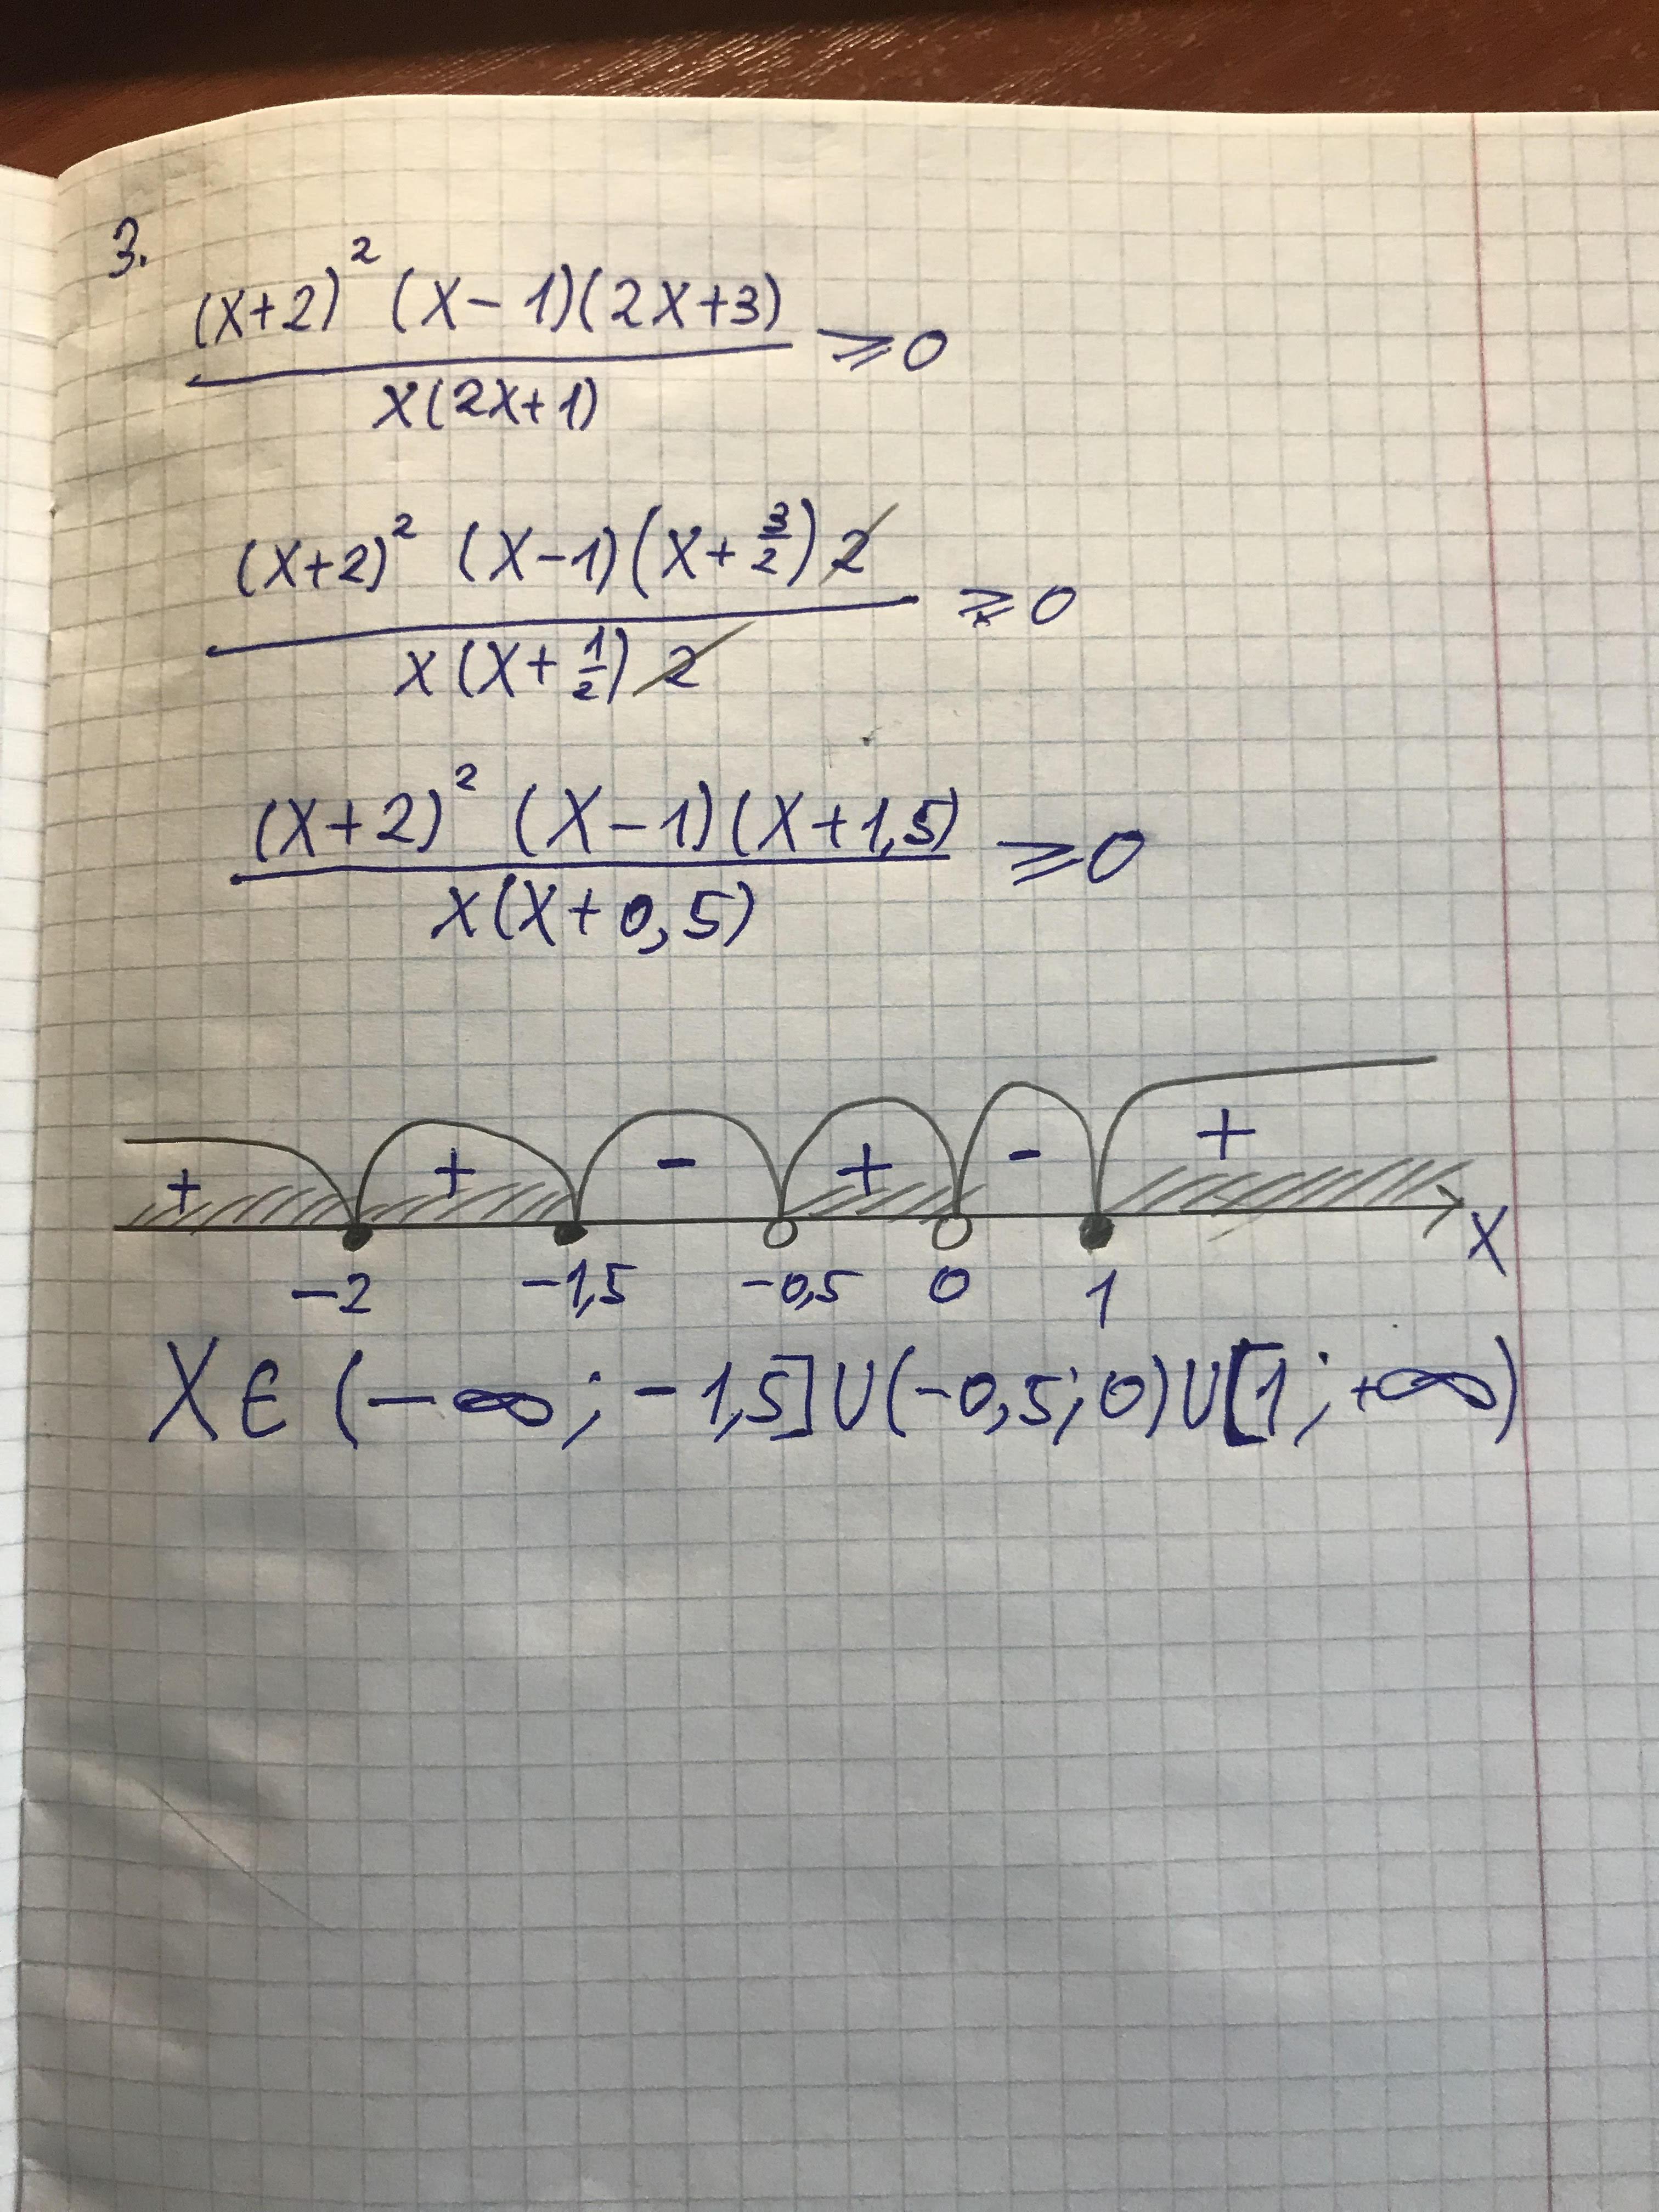 3.
(x+2)² (x-1)(2x+3)
⩾0
x(2x+1)
(x+2)² (x-1)(x+3/2)2
⩾0
x(x+1/2)2
(x+2)² (x-1)(x+1,5)
⩾0
x(x+0,5)
+ + - + - +
-2 -1,5 -0,5 0 1 x
x∈(-∞;-1,5]∪(-0,5;0)∪[1;+∞)